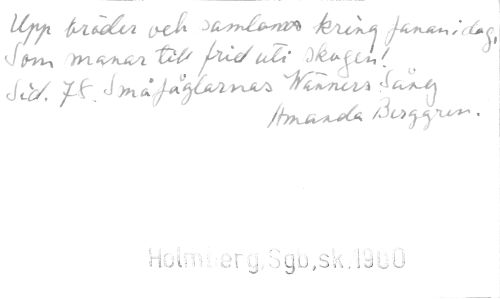 Upp bröder och samloms kring fanan i dag,
Som manar till frid uti skogen!
Sid. 78. Småfåglarnas Wänners Sång
Amanda Berggren.
Holmberg, Sgb, sk. 1900